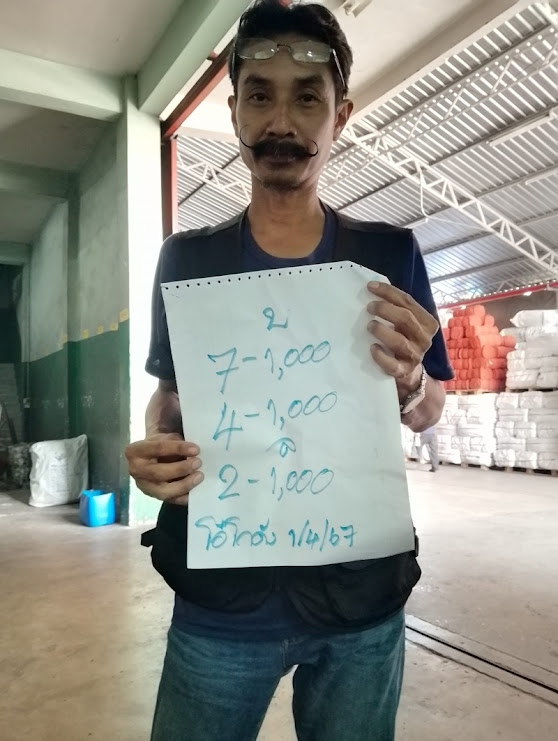 บ
7-1,000
4-1,000
ล
2-1,000
โอ๋โกดัง 1/4/67